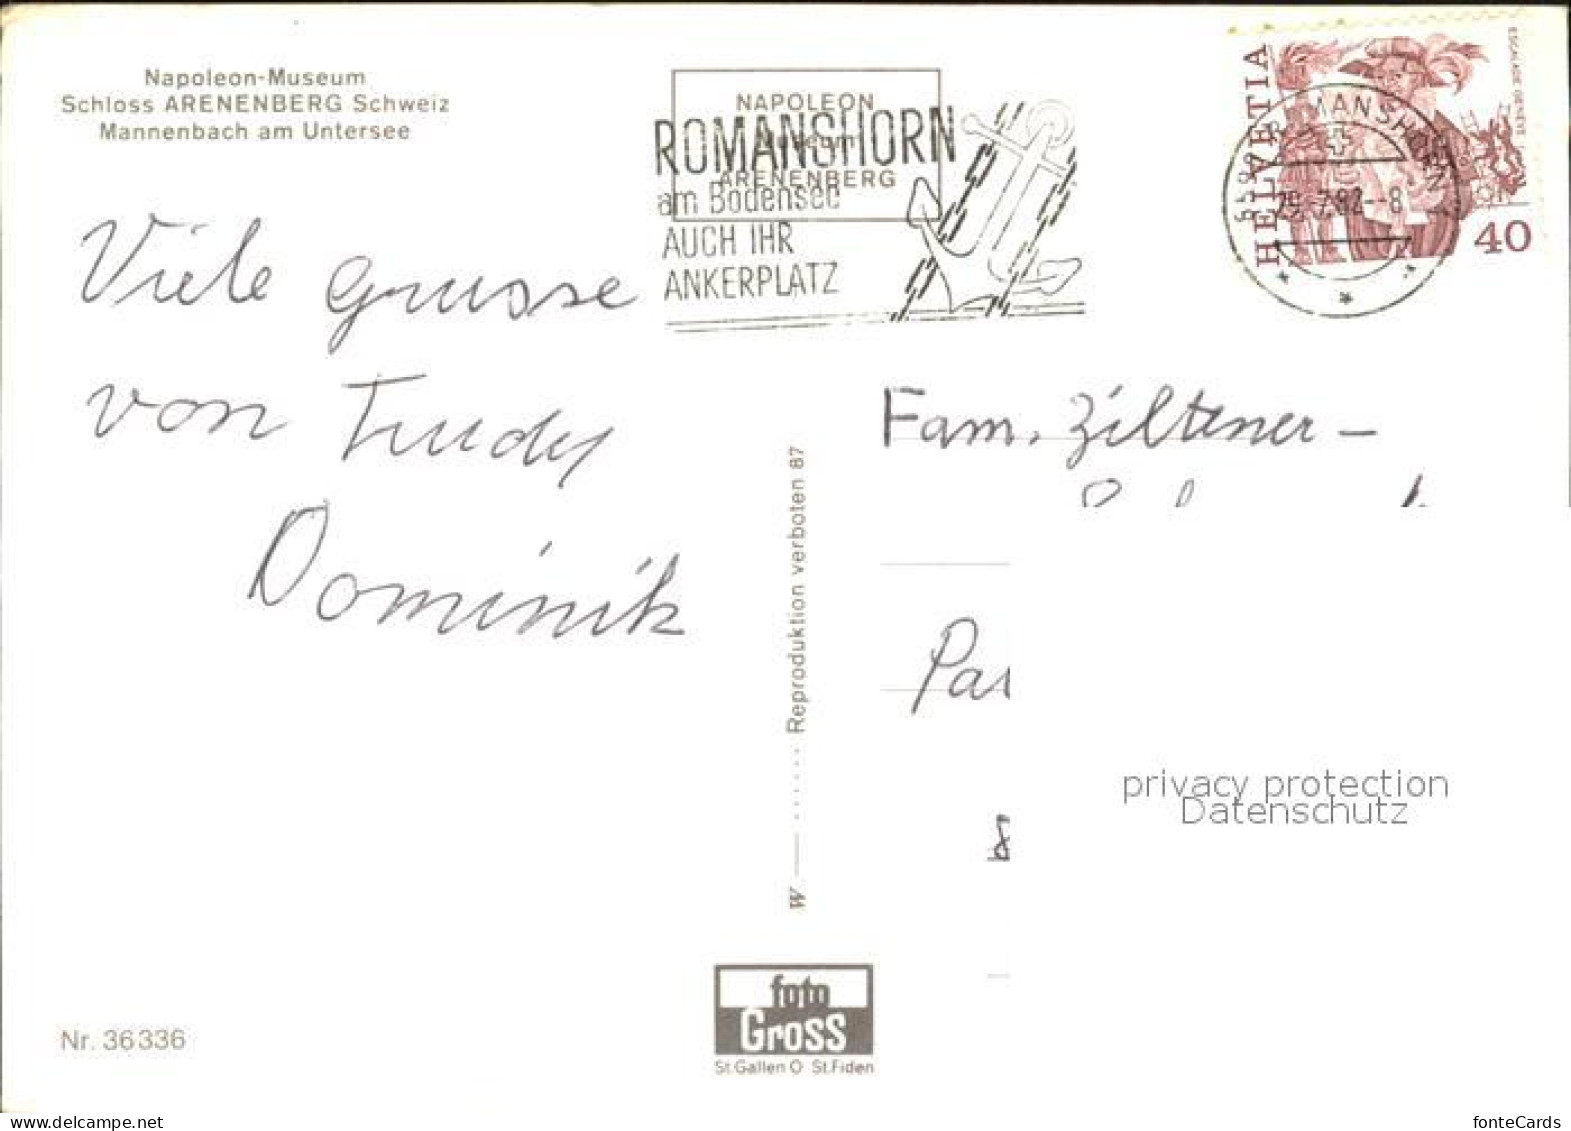 Napoleon-Museum
Schloss ARENENBERG Schweiz
Mannenbach am Untersee
NAPOLEON
MUSEUM
ARENENBERG
ROMANSHORN
am Bodensee
AUCH IHR
ANKERPLATZ
HELVETIA
ESCALADE GENÈVE
40
ROMANSHORN
29.-7.82--8
Viele Grusse
von Trudy
Dominik
Fam. Ziltener -
Reproduktion verboten 87
W
privacy protection
Datenschutz
foto
Gross
St.Gallen O St.Fiden
Nr. 36336
www.delcampe.net
fonteCards